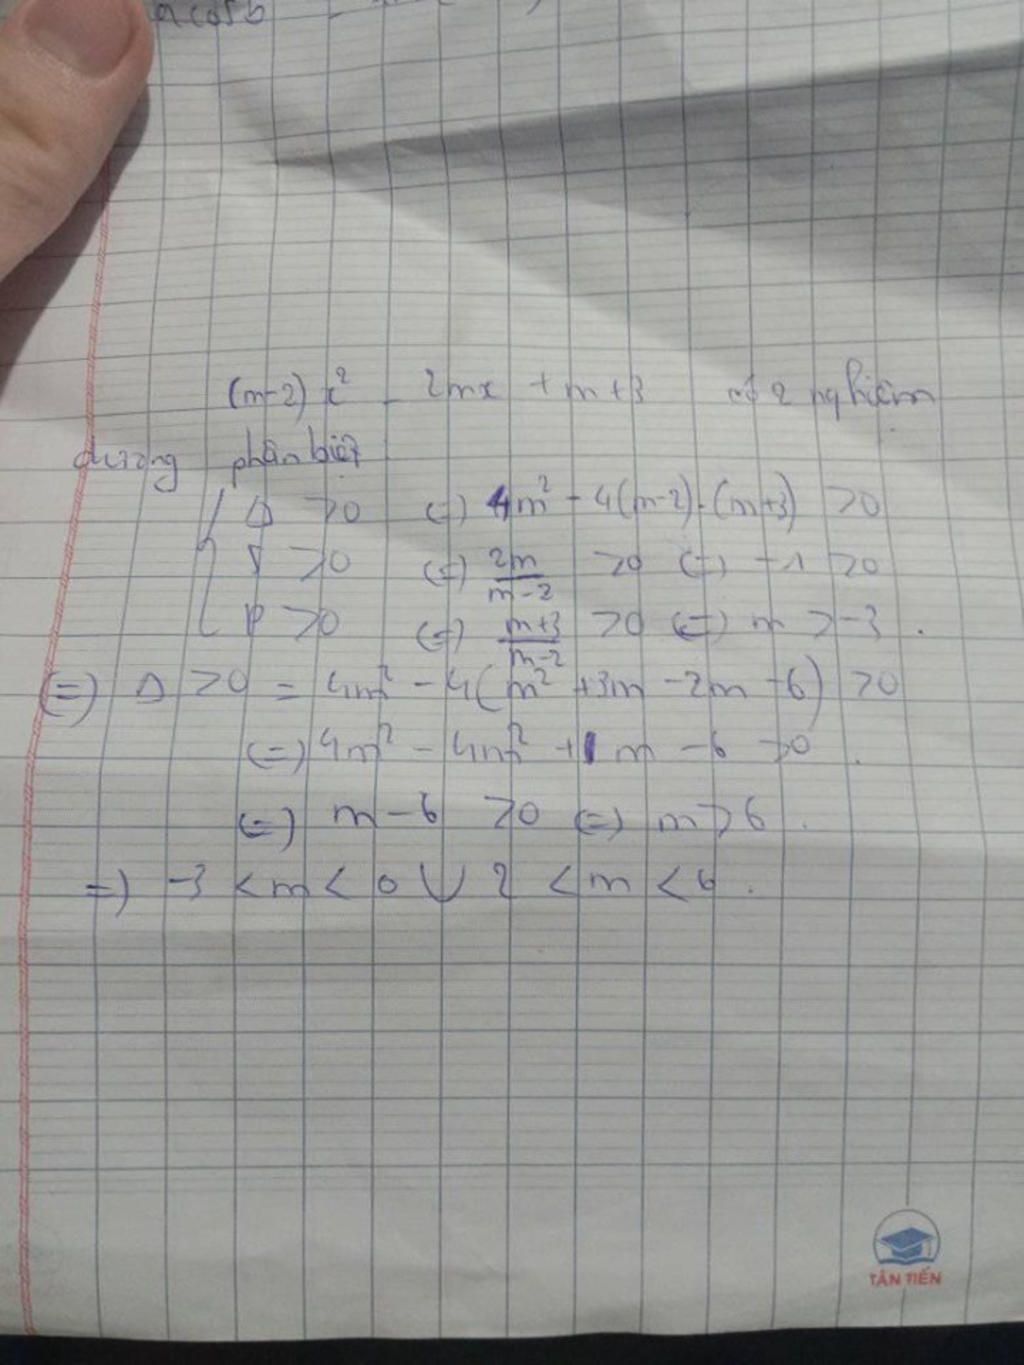 (m-2) x² - 2mx + m+3 có 2 nghiệm
dương phân biệt
Δ >0 (=) 4m² - 4(m-2).(m+3) >0
S >0 (=) 2m/m-2 >0 (=) -1 >0
P >0 (=) m+3/m-2 >0 (=) m >-3 .
(=) Δ >0 = 4m² - 4(m² +3m -2m -6) >0
(=) 4m² - 4m² +1m -6 >0 .
(=) m-6 >0 (=) m>6 .
=) -3 <m< 0 ∪ 2 <m <6 .
TÂN TIẾN